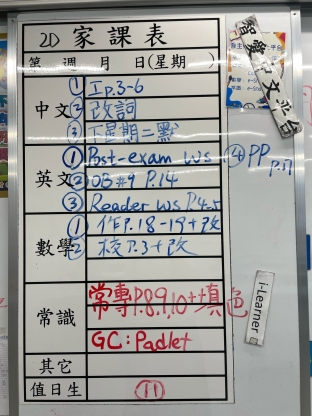 2D 家課表
第 週 月 日(星期 )
中文 ① 工p.3-6
② 改詞
③ 下星期二默
英文 ① Post-exam ws ④ PP p.17
② OB#9 P.14
③ Reader ws P.4-5
數學 ① 作P.18-19+改
② 校P.3+改
常識 常專P.8,9,10++填色
GC: Padlet
其它
值日生 ⑪
智愛中文平台
i-Learner